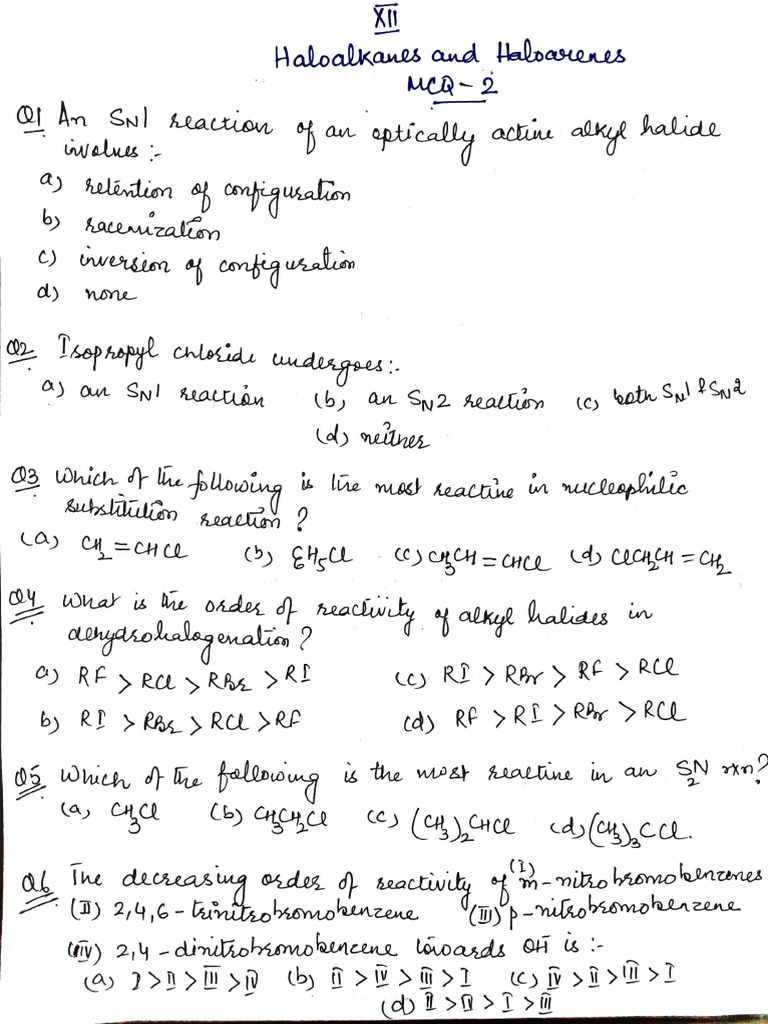 XII
Haloalkanes and Haloarenes
MCQ-2
Q1 An SN1 reaction of an optically active alkyl halide
involves:-
a) retention of configuration
b) racemization
c) inversion of configuration
d) none
Q2 Isopropyl chloride undergoes:-
a) an SN1 reaction (b) an SN2 reaction (c) both SN1 & SN2
(d) neither
Q3 Which of the following is the most reactive in nucleophilic
substitution reaction?
(a) CH2=CHCl (b) C6H5Cl (c) CH3CH=CHCl (d) ClCH2CH=CH2
Q4 What is the order of reactivity of alkyl halides in
dehydrohalogenation?
a) RF > RCl > RBr > RI (c) RI > RBr > RF > RCl
b) RI > RBr > RCl > RF (d) RF > RI > RBr > RCl
Q5 Which of the following is the most reactive in an SN2 rxn?
(a) CH3Cl (b) CH3CH2Cl (c) (CH3)2CHCl (d) (CH3)3CCl.
Q6 The decreasing order of reactivity of (I) m-nitrobromobenzenes
(II) 2,4,6-trinitrobromobenzene (III) p-nitrobromobenzene
(IV) 2,4-dinitrobromobenzene towards OH is:-
(a) I > II > III > IV (b) II > IV > III > I (c) IV > II > III > I
(d) II > IV > I > III